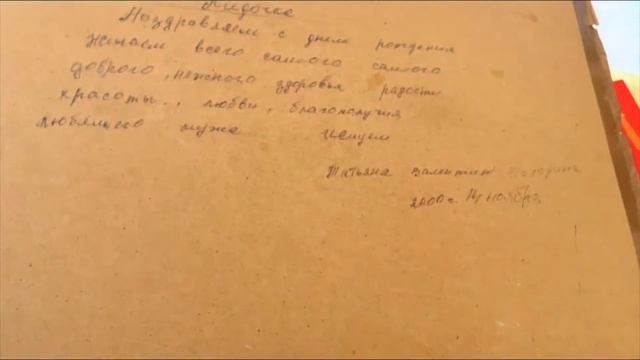 Лидочка
Поздравляем с днем рождения
желаем всего самого самого
доброго, нежного здоровья радости
красоты, любви, благополучия
любящего мужа
Татьяна Валентин
2000 г 14 ноября